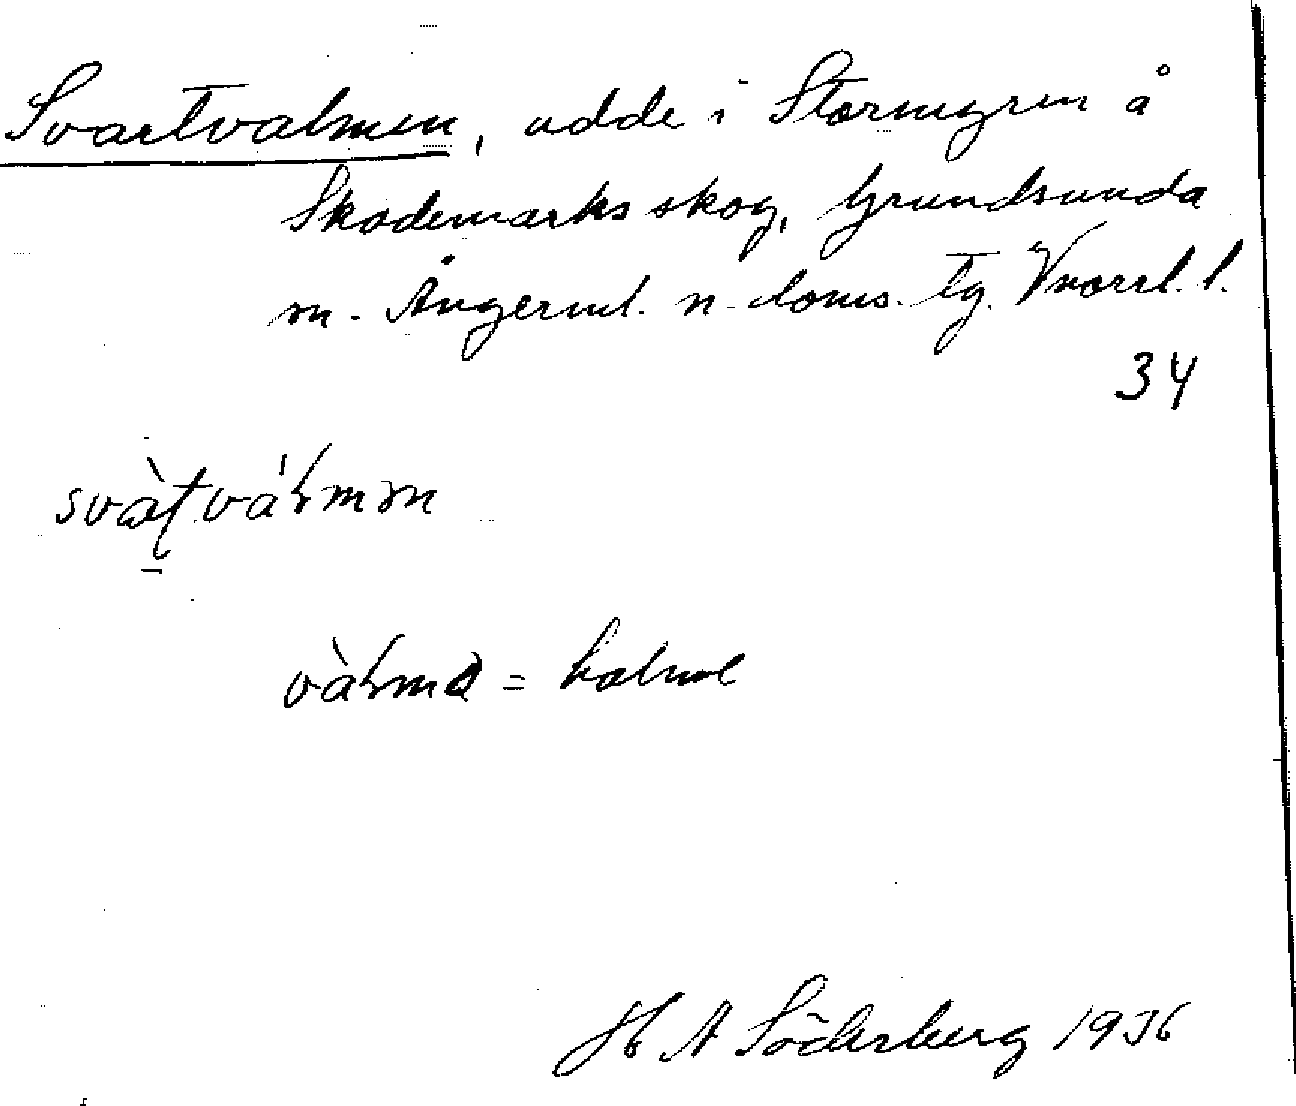 Svartvalmen, udde i Stormyren å
Skademarks skog, Grundsunda
sn. Ångerml. n. doms. tg. Vnorrl. l.
34
svàʈváɽmɔn
vàɽma = halme
H A Söderberg 1936